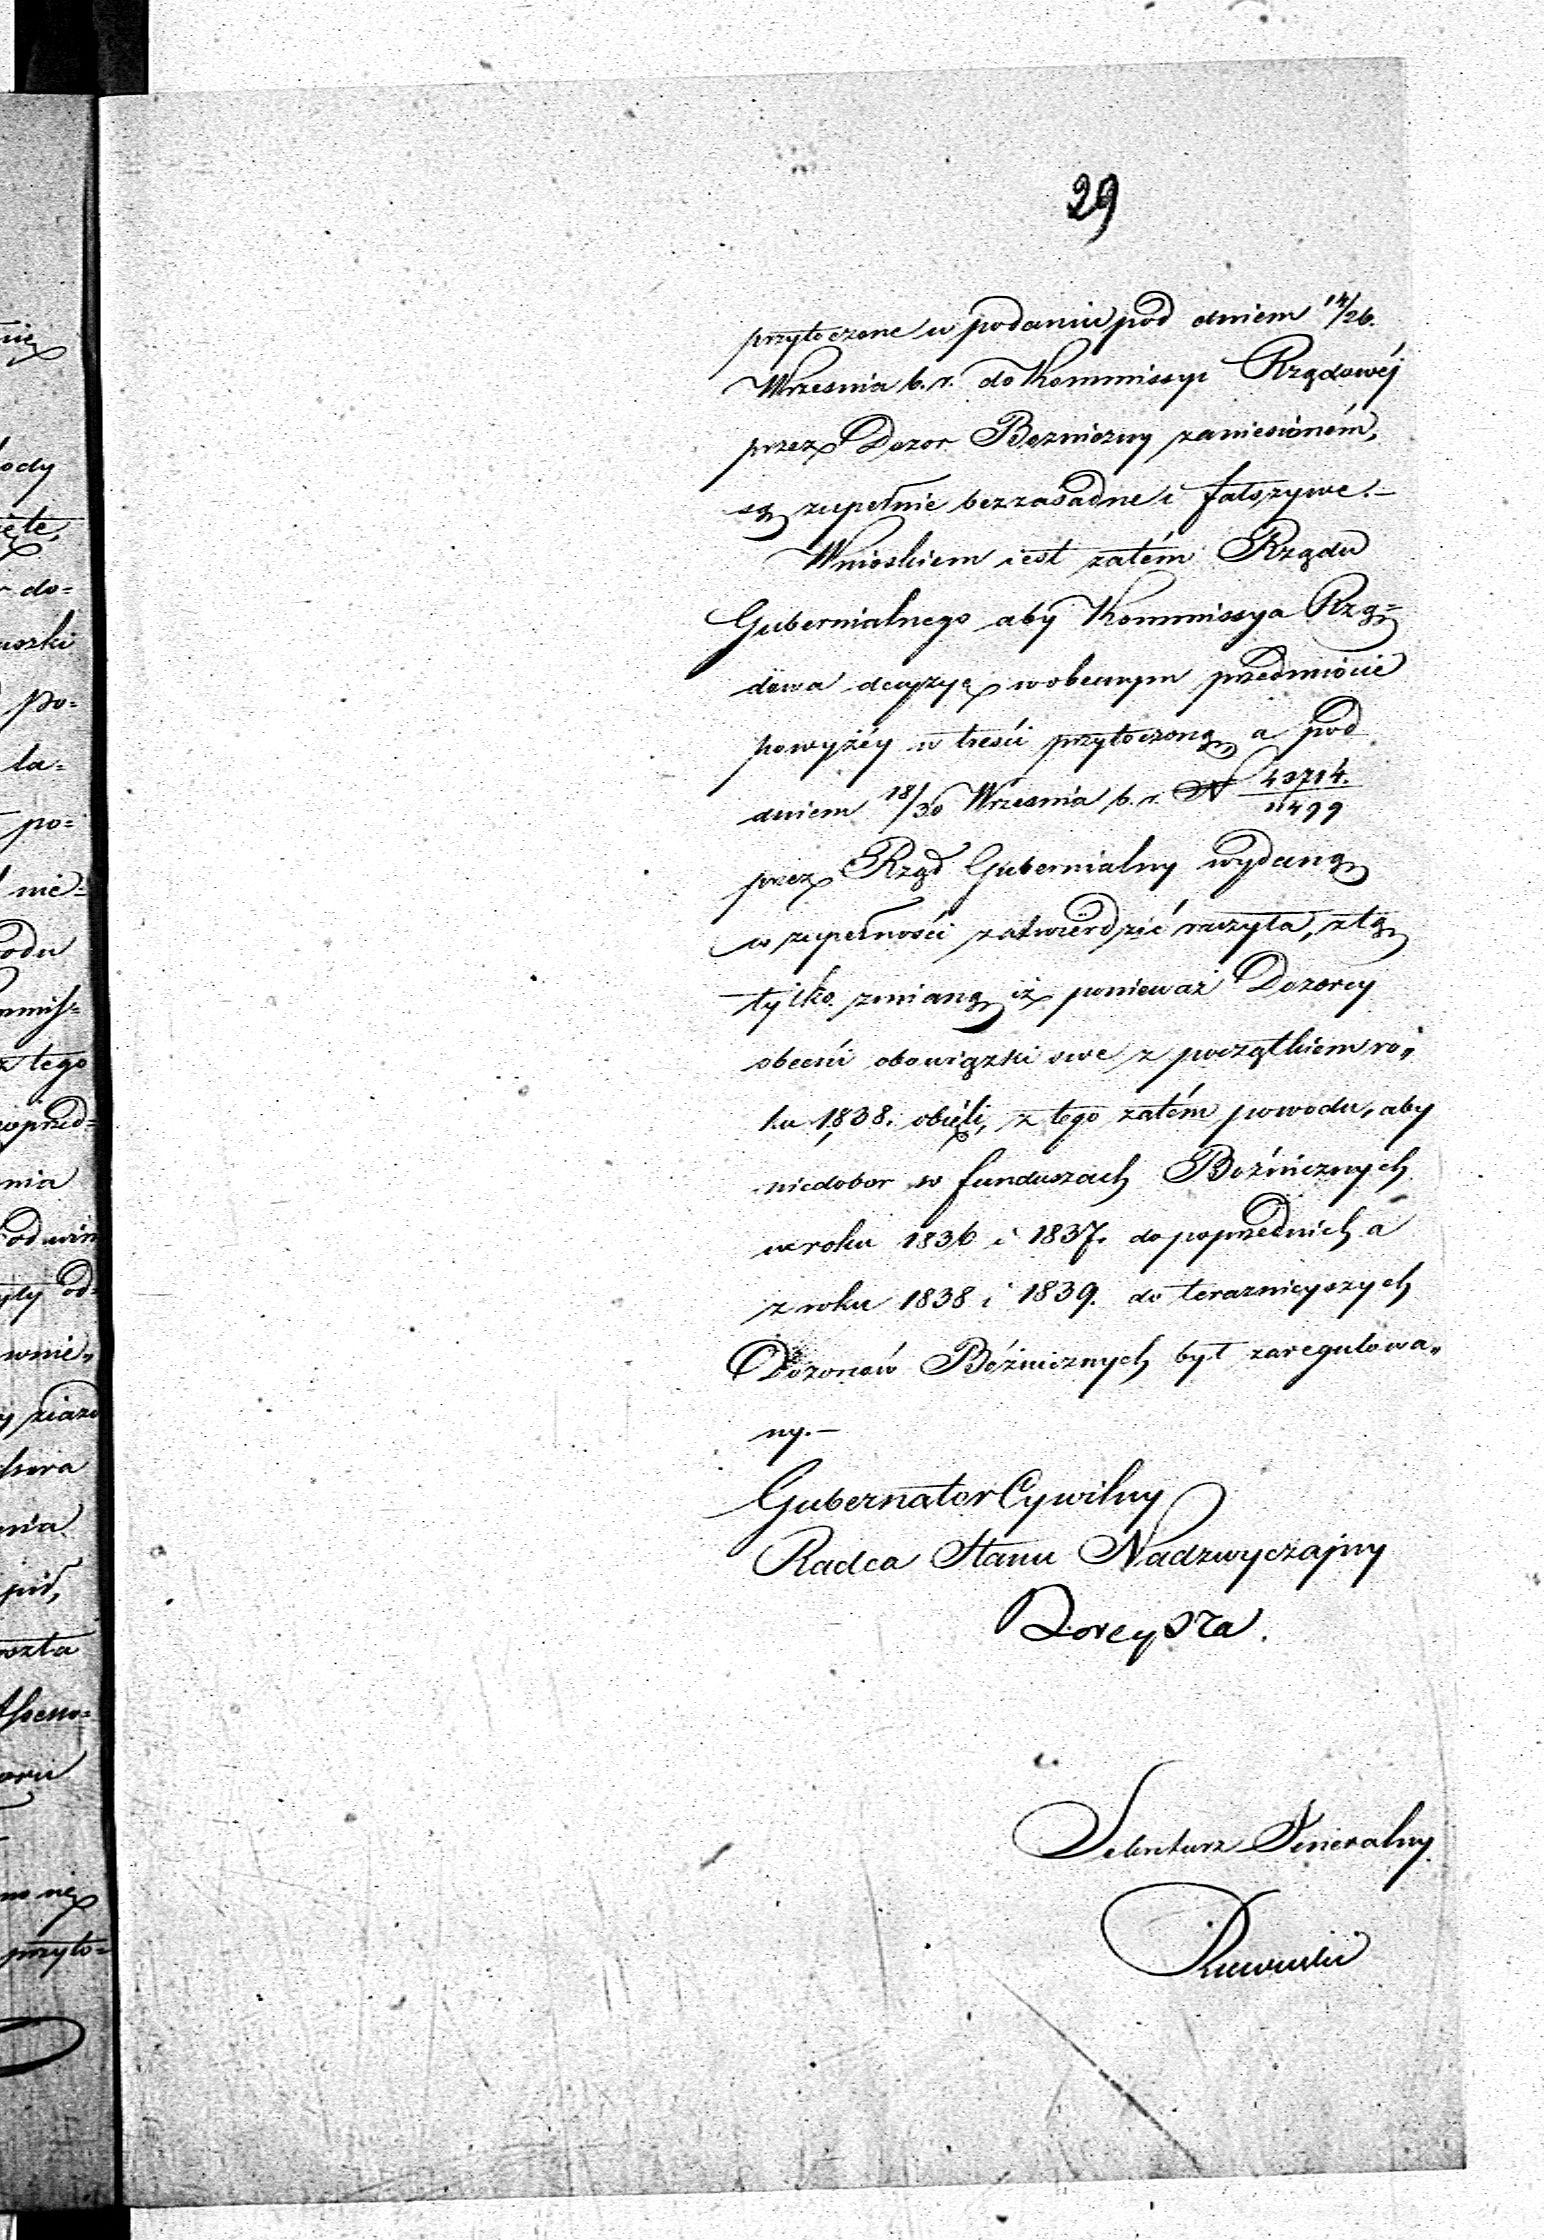 29
przytoczone w podaniu pod dniem 14/26.
Wrzesnia b. r. do Kommissyi Rządowéj
przez Dozor Bóżniczny zaniesioném,
są zupełnie bezzasadne i fałszywe.–
Wnioskiem iest zatém Rządu
Gubernialnego aby Kommissya Rzą=
dowa decyzyę w obecnym przedmiocie
powyżéy w treści przytoczoną a pod
dniem 18/30 Wrzesnia b. r. N 43714./11499
przez Rząd Gubernialny wydaną
w zupełności zatwierdzić raczyła, z tą
tylko zmianą iż ponieważ Dozorcy
obecni obowiązki swe z początkiem ro„
ku 1838. obięli, z tego zatém powodu, aby
niedobor w funduszach Bóźnicznych
w roku 1836 i 1837. do poprzednich a
z roku 1838 i 1839. do teraznieyszych
Dozorców Bóźnicznych był zaregulowa„
ny.–
Gubernator Cywilny
Radca Stanu Nadzwyczajny
Sekretarz Jeneralny
nię
ody
do=
uszki
po=
ła=
po=
nie=
odu
z tego
poprzed=
nia
od=
wnie„
nia
szta
przyto=